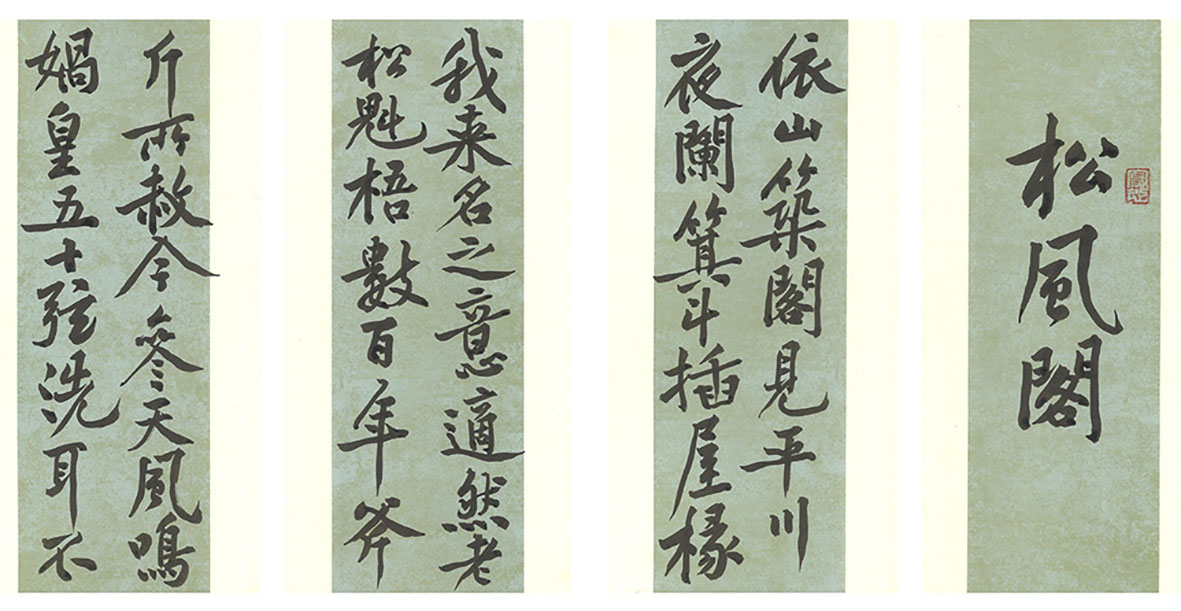 松風閣
依山築閣見平川
夜闌箕斗插屋椽
我来名之意適然老
松魁梧數百年斧
斤所赦今参天風鳴
媧皇五十弦洗耳不